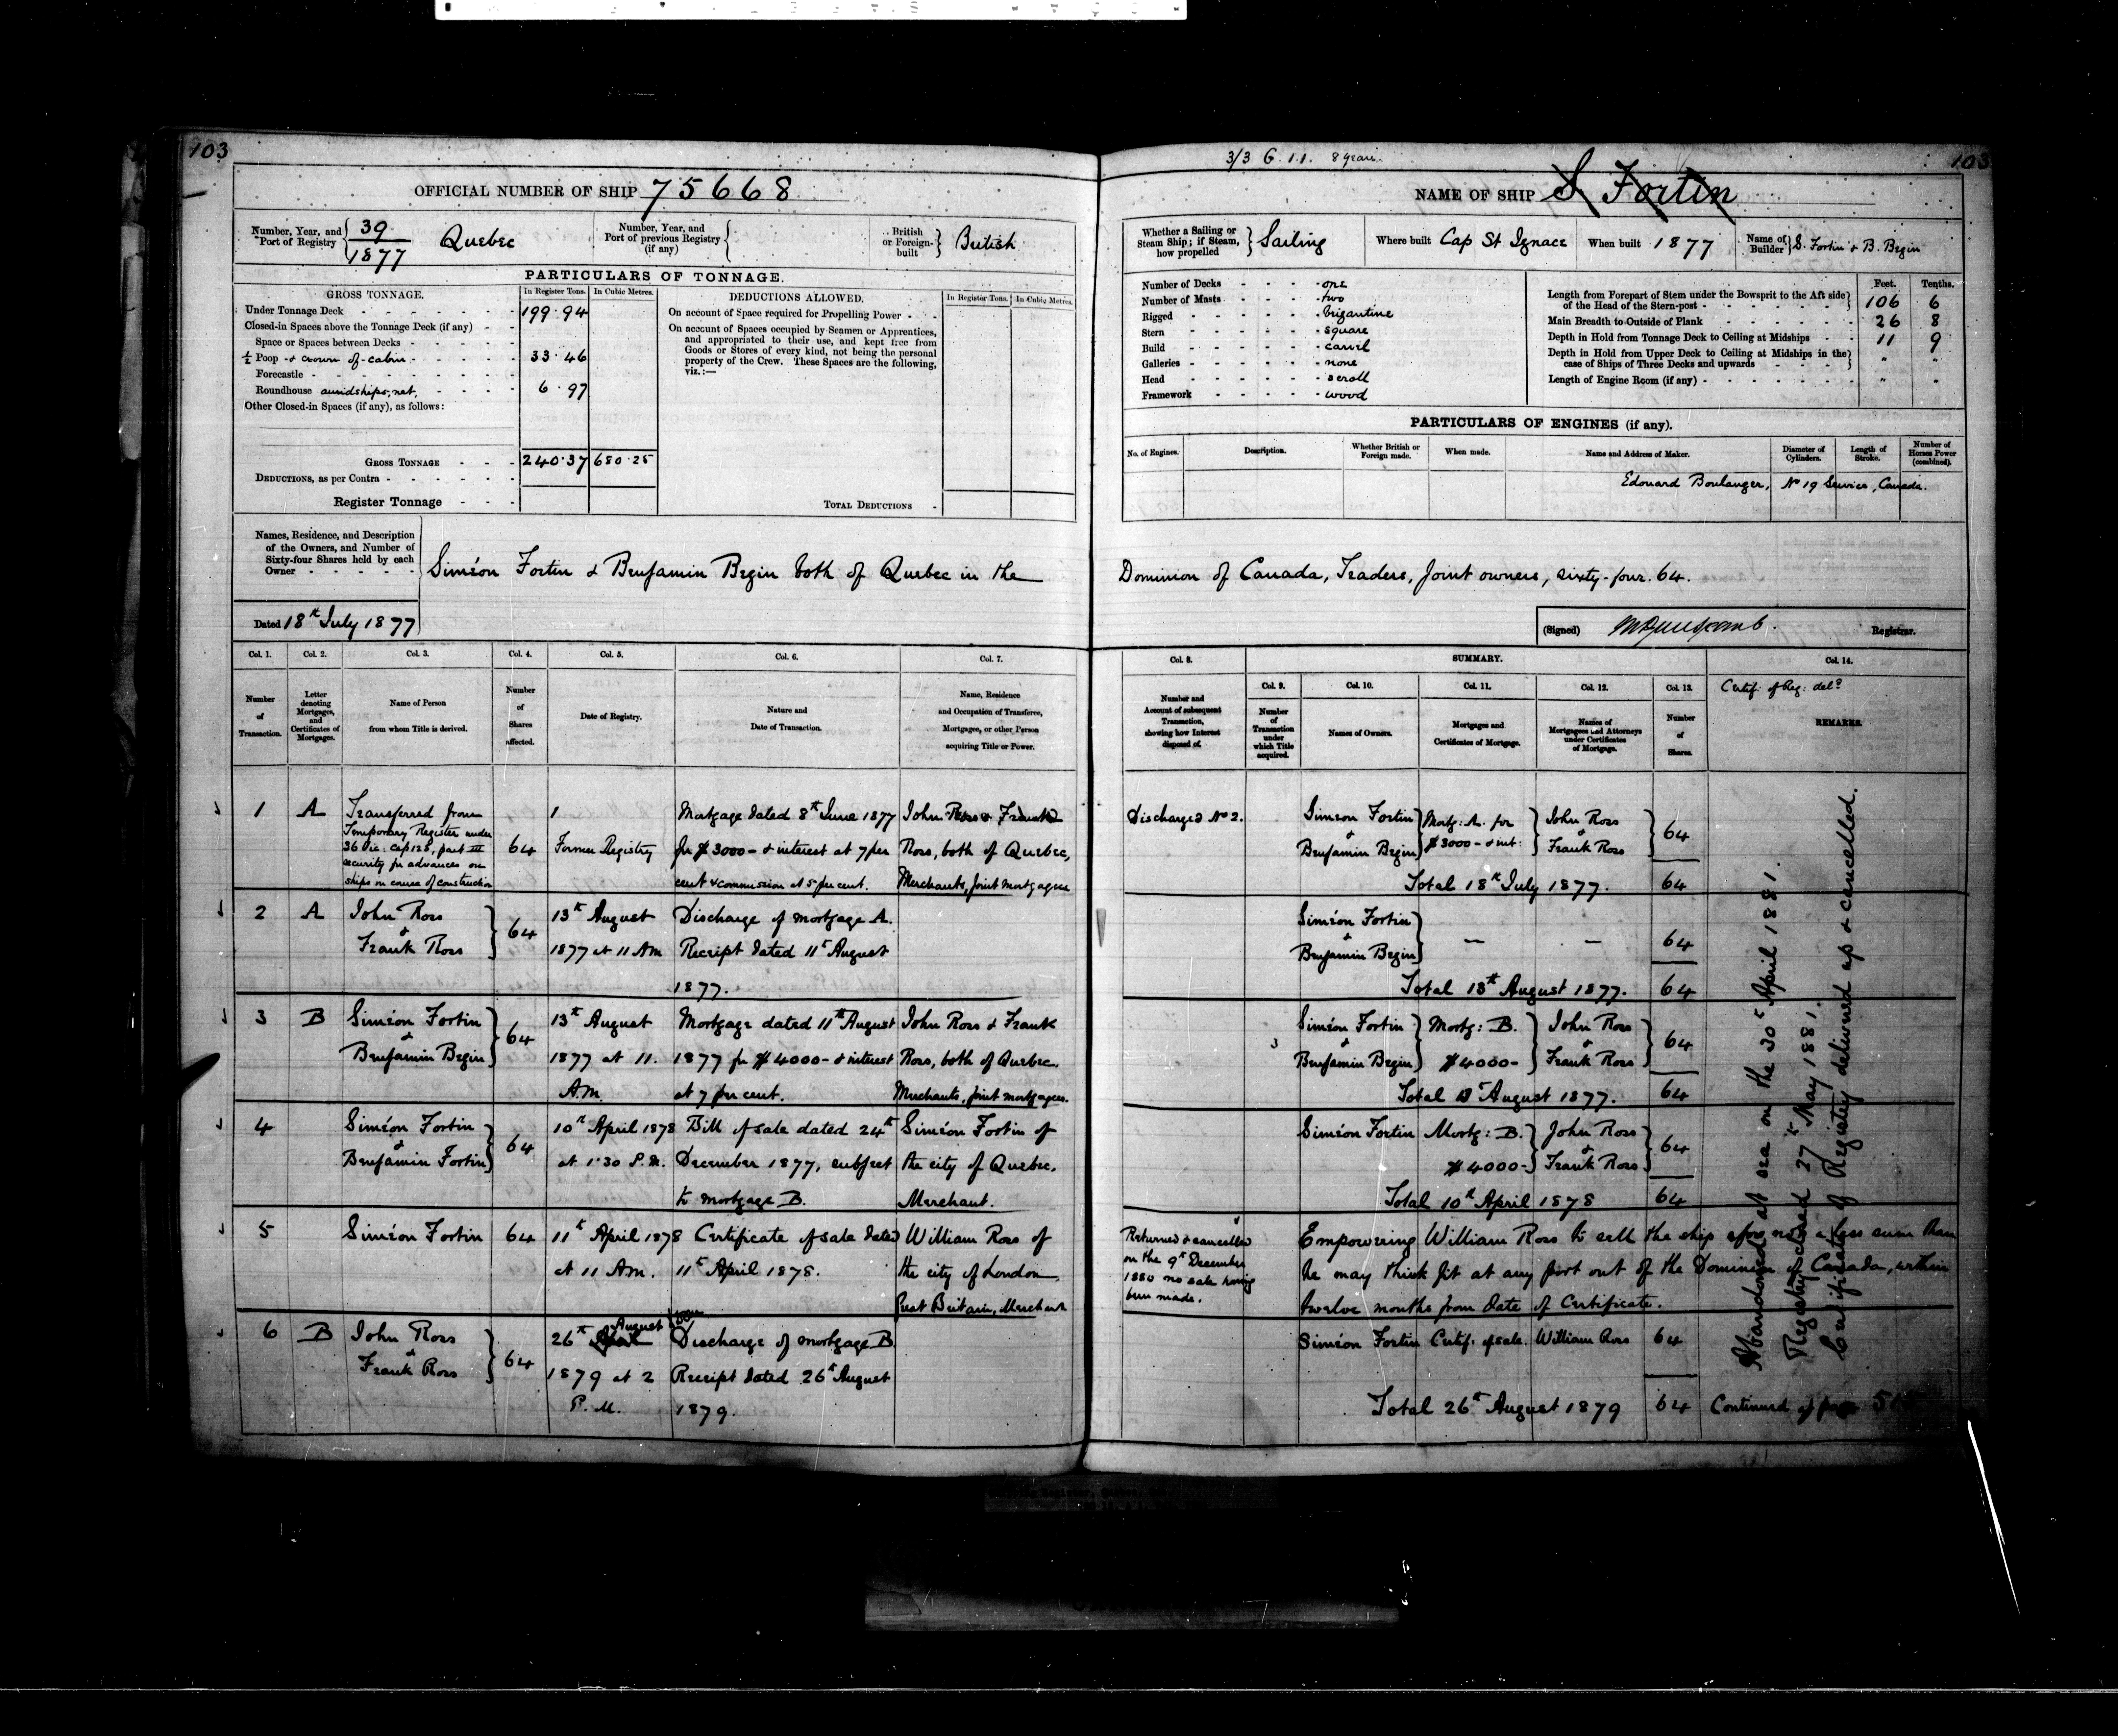 103
OFFICIAL NUMBER OF SHIP 75668
Number, Year, and Port of Registry { 39 / 1877 Quebec
Number, Year, and Port of previous Registry (if any) {
British or Foreign-built } British
PARTICULARS OF TONNAGE.
GROSS TONNAGE. In Register Tons. In Cubic Metres.
Under Tonnage Deck - 199.94
Closed-in Spaces above the Tonnage Deck (if any) -
Space or Spaces between Decks -
½ Poop & crown of cabin - 33.46
Forecastle -
Roundhouse amidships, net. - 6.97
Other Closed-in Spaces (if any), as follows:
GROSS TONNAGE - 240.37 680.25
DEDUCTIONS, as per Contra -
Register Tonnage -
DEDUCTIONS ALLOWED. In Register Tons. In Cubic Metres.
On account of Space required for Propelling Power -
On account of Spaces occupied by Seamen or Apprentices,
and appropriated to their use, and kept free from
Goods or Stores of every kind, not being the personal
property of the Crew. These Spaces are the following,
viz.:—
TOTAL DEDUCTIONS -
3/3 G. 1.1. 8 years.
103
NAME OF SHIP S Fortin
Whether a Sailing or Steam Ship; if Steam, how propelled } Sailing
Where built Cap St Ignace
When built 1877
Name of Builder } S. Fortin & B. Begin
Number of Decks - one
Number of Masts - two
Rigged - brigantine
Stern - square
Build - carvel
Galleries - none
Head - scroll
Framework - wood
Feet. Tenths.
Length from Forepart of Stem under the Bowsprit to the Aft side
of the Head of the Stern-post - 106 6
Main Breadth to Outside of Plank - 26 8
Depth in Hold from Tonnage Deck to Ceiling at Midships - 11 9
Depth in Hold from Upper Deck to Ceiling at Midships in the
case of Ships of Three Decks and upwards - " "
Length of Engine Room (if any) - " "
PARTICULARS OF ENGINES (if any).
No. of Engines. Description. Whether British or Foreign made. When made. Name and Address of Maker. Diameter of Cylinders. Length of Stroke. Number of Horses Power (combined).
Edouard Boulanger, No 19 Service, Canada.
Names, Residence, and Description
of the Owners, and Number of
Sixty-four Shares held by each
Owner -
Siméon Fortin & Benjamin Begin both of Quebec in the
Dominion of Canada, Traders, Joint owners, sixty-four. 64.
Dated 18th July 1877
(Signed) Registrar.
Col. 1. Col. 2. Col. 3. Col. 4. Col. 5. Col. 6. Col. 7.
Number of Transaction.
Letter denoting Mortgages, and Certificates of Mortgages.
Name of Person from whom Title is derived.
Number of Shares affected.
Date of Registry.
Nature and Date of Transaction.
Name, Residence and Occupation of Transferee, Mortgagee, or other Person acquiring Title or Power.
Col. 8. SUMMARY. Col. 14.
Col. 9. Col. 10. Col. 11. Col. 12. Col. 13.
Number and Account of subsequent Transaction, showing how Interest disposed of.
Number of Transaction under which Title acquired.
Names of Owners.
Mortgages and Certificates of Mortgage.
Names of Mortgagees and Attorneys under Certificates of Mortgage.
Number of Shares.
Certif. of Reg: deld
REMARKS.
1 A
Transferred from
Temporary Register under
36 Vic: Cap 128, part III
security for advances on
ships in course of construction
64
1
Former Registry
Mortgage dated 8th June 1877
for $3000- & interest at 7 per
cent & commission at 5 per cent.
John Ross & Frank
Ross, both of Quebec,
Merchants, Joint mortgagees
Discharged No 2.
Simeon Fortin
&
Benjamin Begin
Mortg: A. for
$3000- & int:
John Ross
&
Frank Ross
64
Total 18th July 1877. 64
2 A
John Ross
&
Frank Ross
64
13th August
1877 at 11 AM
Discharge of mortgage A.
Receipt dated 11th August
1877.
Siméon Fortin
&
Benjamin Begin
— — 64
Total 13th August 1877. 64
3 B
Siméon Fortin
&
Benjamin Begin
64
13th August
1877 at 11.
A.M.
Mortgage dated 11th August
1877 for $4000- & interest
at 7 per cent.
John Ross & Frank
Ross, both of Quebec.
Merchants, joint mortgagees.
3
Siméon Fortin
&
Benjamin Begin
Mortg: B.
$4000-
John Ross
&
Frank Ross
64
Total 13th August 1877. 64
4
Siméon Fortin
&
Benjamin Fortin
64
10th April 1878
at 1.30 P.M.
Bill of sale dated 24th
December 1877, subject
to mortgage B.
Siméon Fortin of
the city of Quebec.
Merchant.
Siméon Fortin
Mortg: B.
$4000-
John Ross
&
Frank Ross
64
Total 10th April 1878 64
5
Siméon Fortin
64
11th April 1878
at 11 AM.
Certificate of sale dated
11th April 1878.
William Ross of
the city of London
Great Britain, Merchant
Returned & cancelled
on the 9th December
1880 no sale having
been made.
Empowering William Ross to sell the ship for no less sum than
he may think fit at any port out of the Dominion of Canada, within
twelve months from date of Certificate.
6 B
John Ross
&
Frank Ross
64
26th April August
1879 at 2
P.M.
Discharge of mortgage B
Receipt dated 26th August
1879.
Siméon Fortin Certif. of sale. William Ross 64
Total 26th August 1879 64
Continued at page
Abandoned at sea on the 30th April 1881.
Registry closed 27th May 1881.
Certificate of Registry delivered up & cancelled.